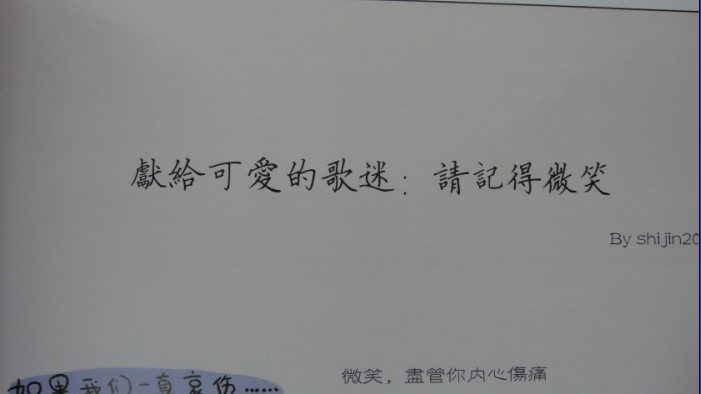 獻給可愛的歌迷：請記得微笑
By shijin20
如果我们一直哀伤……
微笑，盡管你内心傷痛